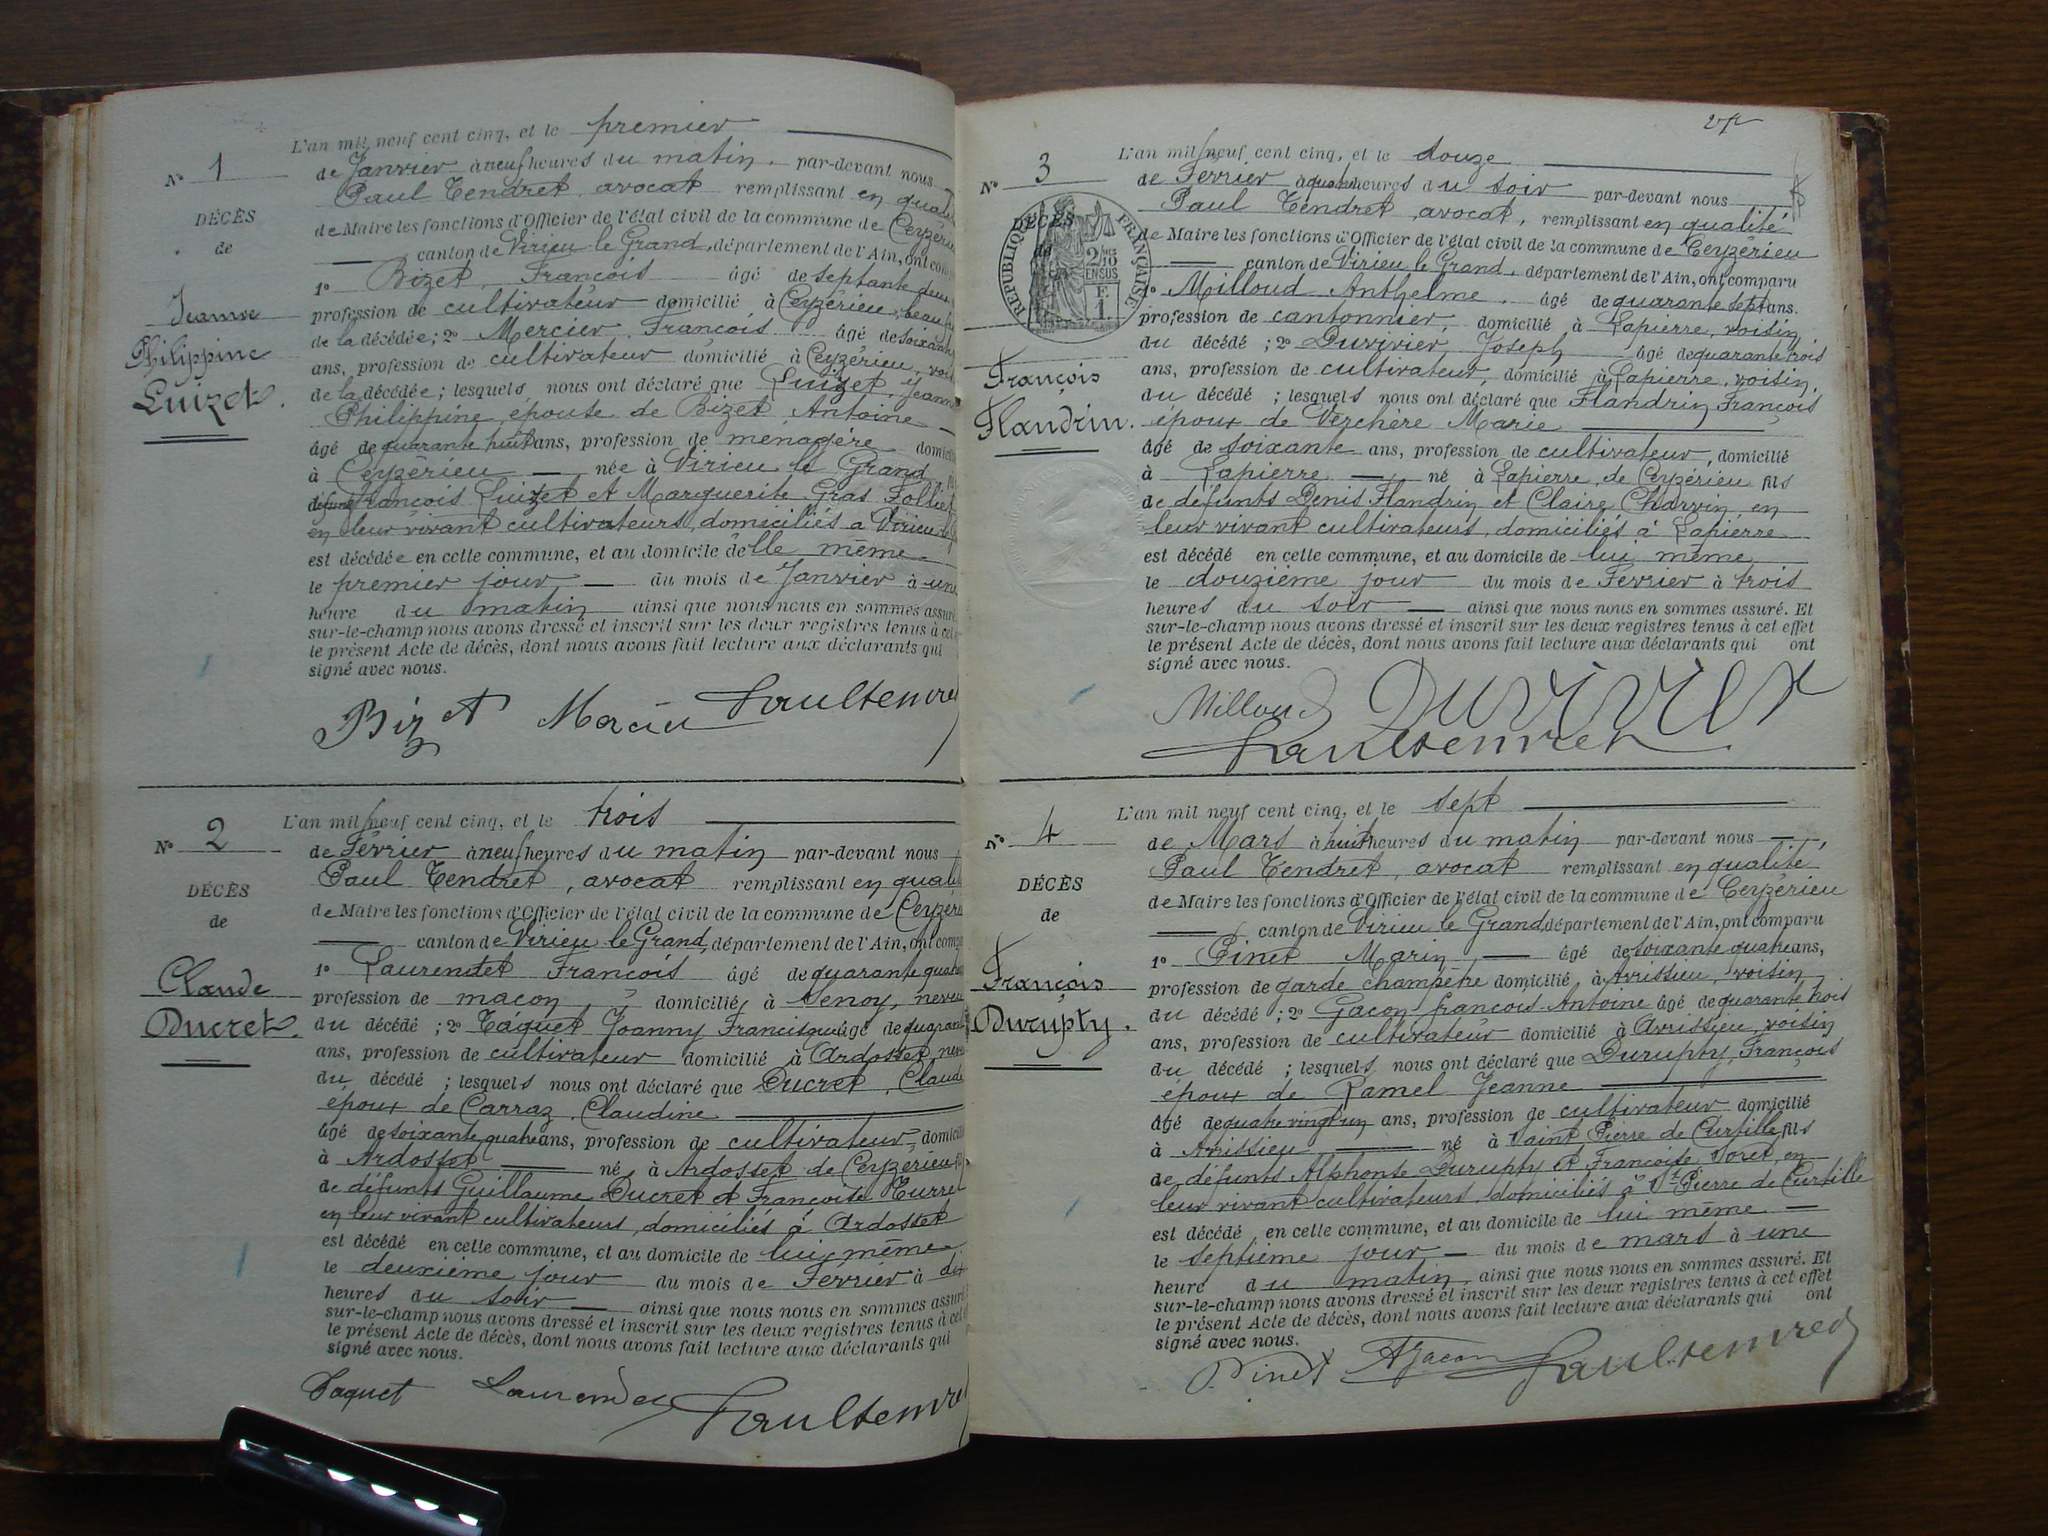 L'an mil neuf cent cinq, et le premier
N° 1
de Janvier à neuf heures du matin, par-devant nous
Paul Tendret, avocat remplissant en
DÉCÈS
de Maire les fonctions d'Officier de l'état civil de la commune de
de
canton de Virieu le Grand, département de l'Ain, ont
1° Bizet, François âgé de septante deux
profession de cultivateur domicilié à Ceyzérieu, beau
Jeanne
de la décédée; 2° Mercier François âgé de
Philippine
ans, profession de cultivateur domicilié à Ceyzérieu,
Luizet.
de la décédée; lesquels nous ont déclaré que Luizet, Jeanne
Philippine, épouse de Bizet Antoine
âgé de quarante huit ans, profession de ménagère
à Ceyzérieu née à Virieu le Grand
défunts François Luizet et Marguerite Gras Follier
en leur vivant cultivateurs, domiciliés à Virieu
est décédée en cette commune, et au domicile d'elle même
le premier jour du mois de Janvier à une
heure du matin ainsi que nous nous en sommes
sur-le-champ nous avons dressé et inscrit sur les deux registres tenus à
le présent Acte de décès, dont nous avons fait lecture aux déclarants qui
signé avec nous.
Bizet Mercier Paul Tendret
L'an mil neuf cent cinq, et le trois
N° 2
de Février à neuf heures du matin par-devant nous
Paul Tendret, avocat remplissant en
DÉCÈS
de Maire les fonctions d'Officier de l'état civil de la commune de
de
canton de Virieu le Grand, département de l'Ain, ont
1° Laurendet François âgé de quarante
Claude
profession de maçon, domicilié à Senoy, neveu
Ducret.
du décédé; 2° Taquet Joanny Francisque âgé de
ans, profession de cultivateur domicilié à Ardosset
du décédé; lesquels nous ont déclaré que Ducret, Claude
époux de Carraz Claudine
âgé de soixante quatre ans, profession de cultivateur,
à Ardosset né à Ardosset de Ceyzérieu
de défunts Guillaume Ducret et Françoise
en leur vivant cultivateurs, domiciliés à Ardosset
est décédé en cette commune, et au domicile de lui même
le deuxième jour du mois de Février à
heures du soir ainsi que nous nous en sommes
sur-le-champ nous avons dressé et inscrit sur les deux registres tenus à
le présent Acte de décès, dont nous avons fait lecture aux déclarants qui
signé avec nous.
Taquet Laurendet Paul Tendret
L'an mil neuf cent cinq, et le douze
N° 3
de Février à quatre heures du soir par-devant nous
Paul Tendret, avocat, remplissant en qualité
DÉCÈS
de
RÉPUBLIQUE FRANÇAISE
de Maire les fonctions d'Officier de l'état civil de la commune de Ceyzérieu
canton de Virieu le Grand, département de l'Ain, ont comparu
1° Milloud Anthelme. âgé de quarante sept ans.
profession de cantonnier, domicilié à Lapierre, voisin
du décédé; 2° Duvivier Joseph âgé de quarante trois
François
ans, profession de cultivateur, domicilié à Lapierre, voisin,
Flandrin.
du décédé; lesquels nous ont déclaré que Flandrin François
époux de Verchère Marie
âgé de soixante ans, profession de cultivateur, domicilié
à Lapierre né à Lapierre de Ceyzérieu fils
de défunts Denis Flandrin et Claire Charvin, en
leur vivant cultivateurs, domiciliés à Lapierre
est décédé en cette commune, et au domicile de lui même
le douzième jour du mois de Février à trois
heures du soir ainsi que nous nous en sommes assuré. Et
sur-le-champ nous avons dressé et inscrit sur les deux registres tenus à cet effet
le présent Acte de décès, dont nous avons fait lecture aux déclarants qui ont
signé avec nous.
Milloud Duvivier
Paul Tendret
L'an mil neuf cent cinq, et le sept
N° 4
de Mars à huit heures du matin par-devant nous
Paul Tendret, avocat remplissant en qualité
DÉCÈS
de Maire les fonctions d'Officier de l'état civil de la commune de Ceyzérieu
de
canton de Virieu le Grand, département de l'Ain, ont comparu
1° Pinet Marin âgé de soixante quatre ans,
François
profession de garde champêtre domicilié à Avrissieu, voisin
Durupty.
du décédé; 2° Gacon françois Antoine âgé de quarante trois
ans, profession de cultivateur domicilié à Avrissieu, voisin
du décédé; lesquels nous ont déclaré que Durupty, François
époux de Ramel Jeanne
âgé de quatre vingt un ans, profession de cultivateur domicilié
à Avrissieu né à Saint Pierre de Curtille fils
de défunts Alphonse Durupty et Françoise Voret, en
leur vivant cultivateurs, domiciliés à St Pierre de Curtille
est décédé en cette commune, et au domicile de lui même
le septième jour du mois de mars à une
heure du matin, ainsi que nous nous en sommes assuré. Et
sur-le-champ nous avons dressé et inscrit sur les deux registres tenus à cet effet
le présent Acte de décès, dont nous avons fait lecture aux déclarants qui ont
signé avec nous.
Pinet AGacon Paul Tendret